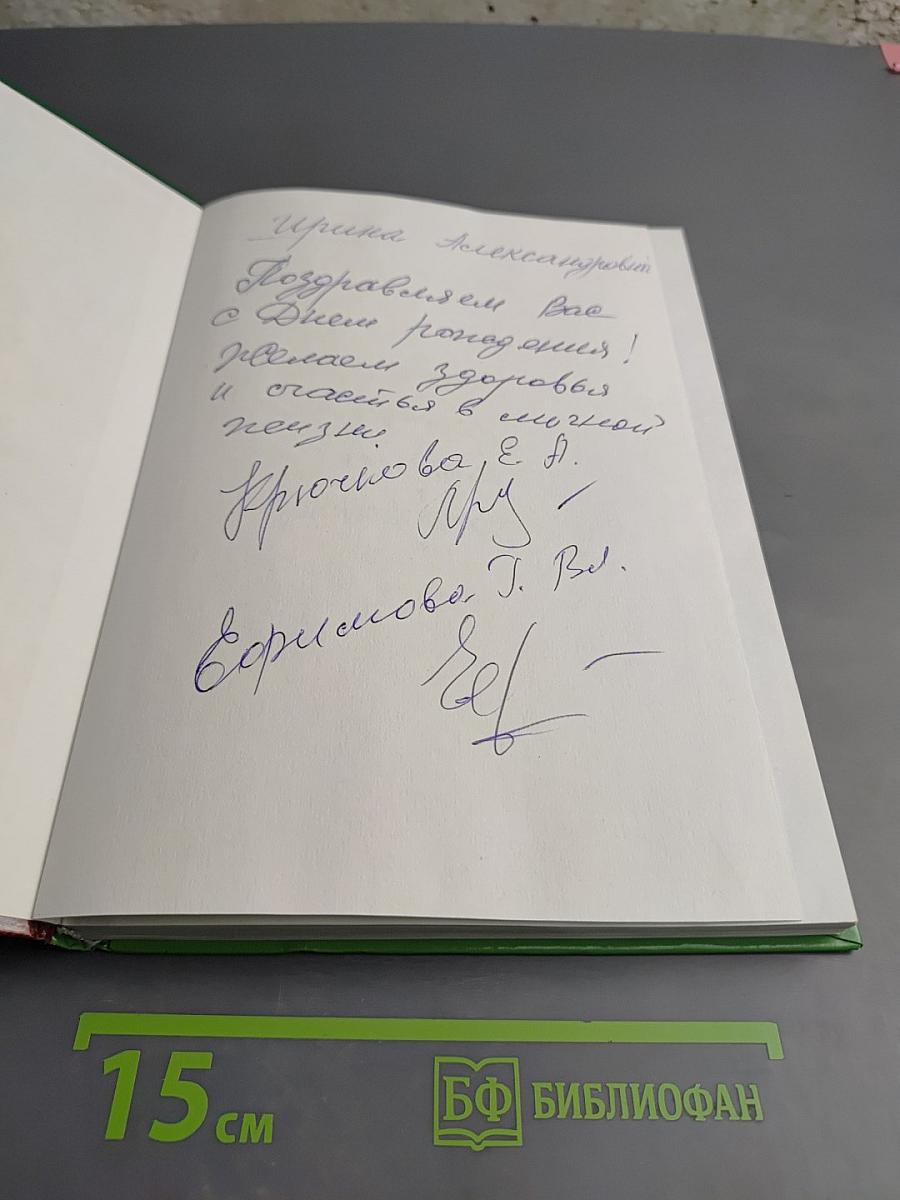 Ирина Александровн
Поздравляем Вас
с Днем рождения!
желаем здоровья
и счастья в личной
жизни
Крючкова Е. А.
Ефимова Г. Вл.
15 см
БФ БИБЛИОФАН